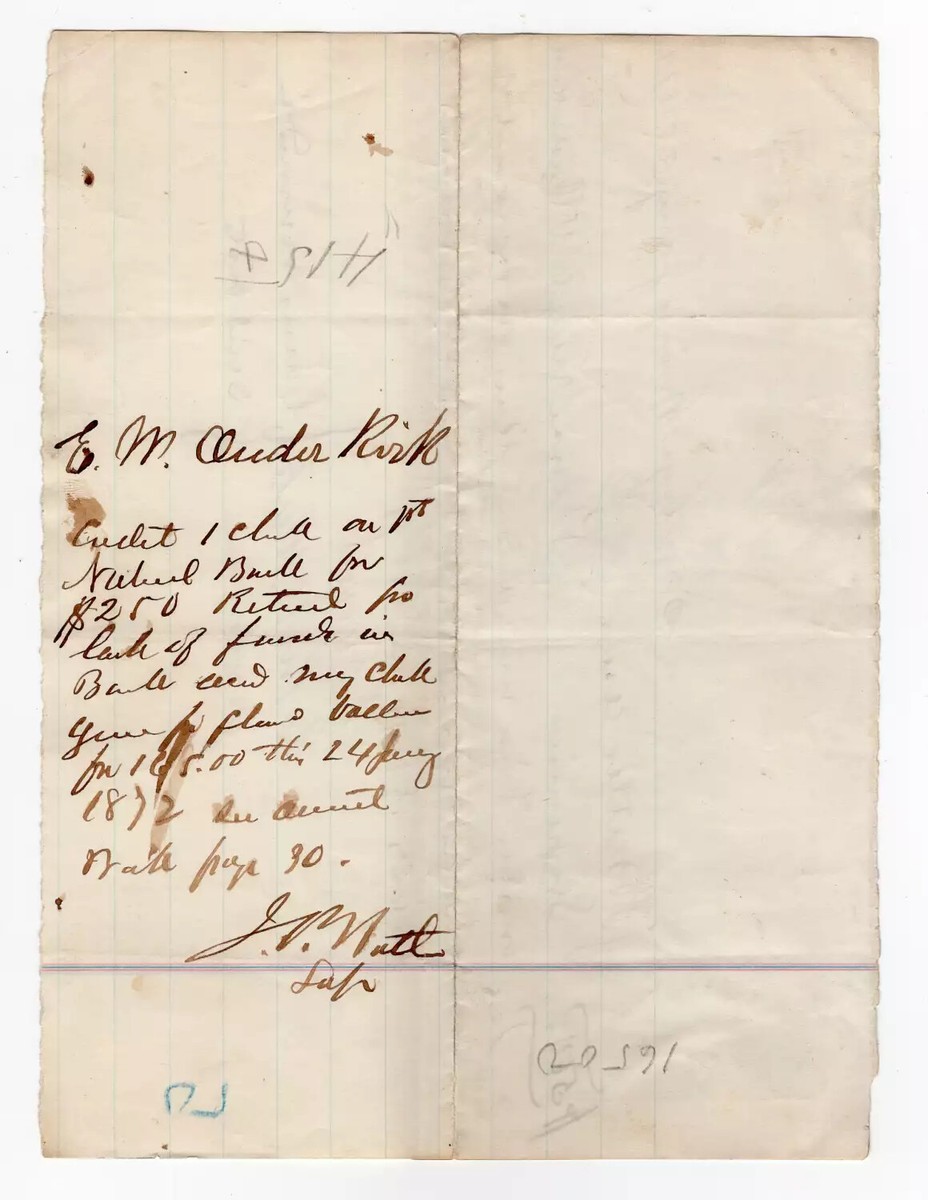 E. W. Onder Kirk
Credit 1 check on 1st
National Bank for
$250 Returd for
lack of funds in
Bank and my check
given for
for 165.00 this 24 Jany
1872 see account
Book page 30.
J. P.
Supr